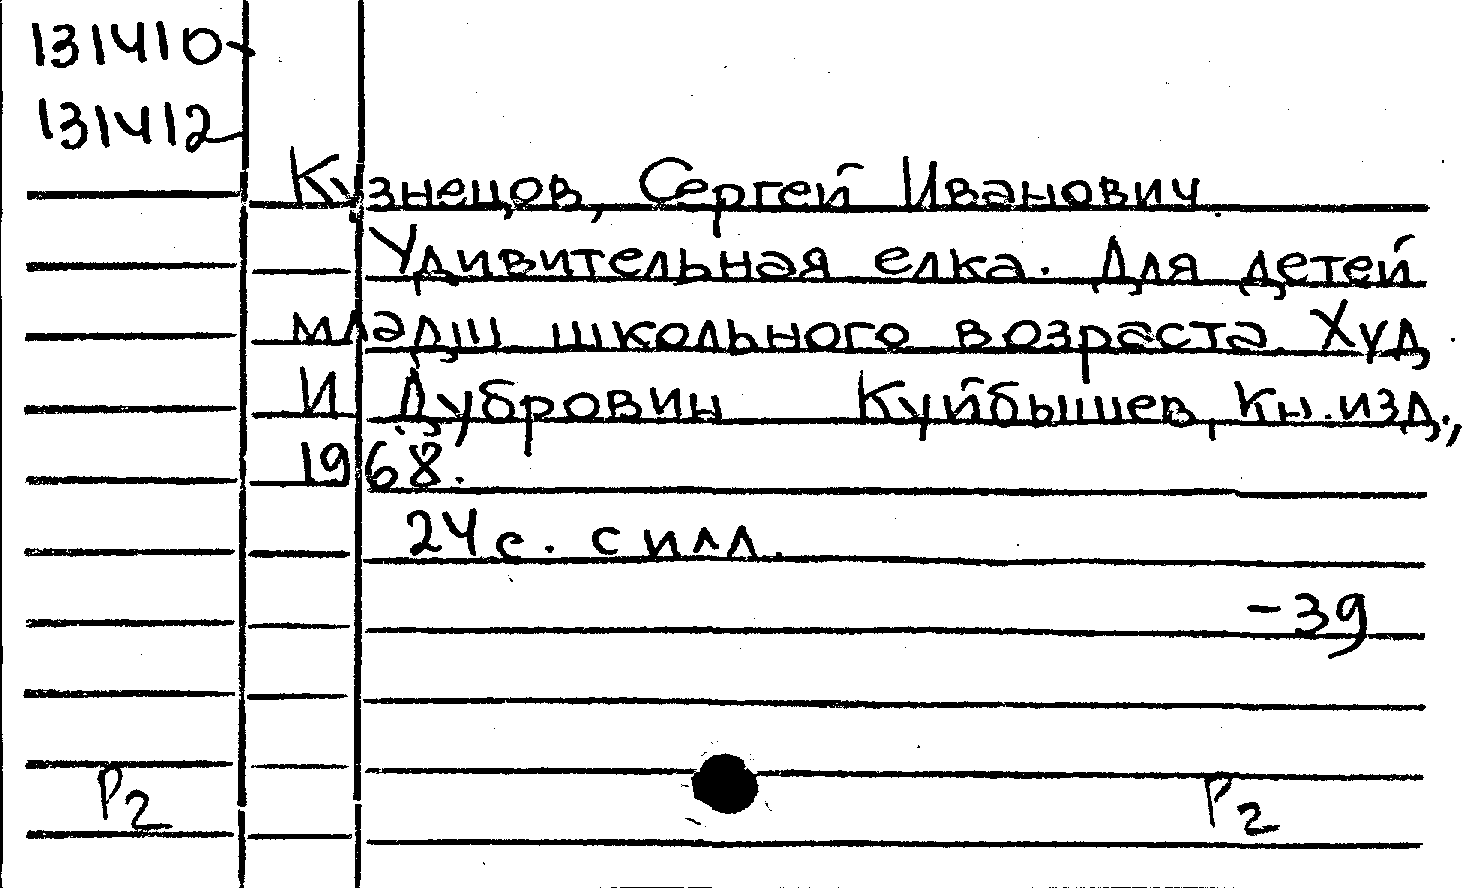 131410-
131412
Кузнецов, Сергей Иванович.
Удивительная елка. Для детей
младш школьного возраста. Худ,
И Дубровин Куйбышев, Кн.изд.,
1968.
24с. с илл.
-39
Р2 Р2